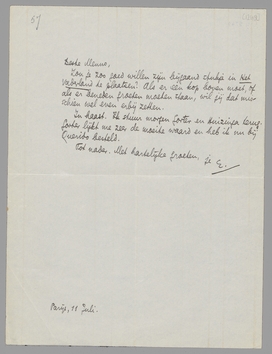 57
Beste Menno,
Zou je zoo goed willen zijn bijgaand stukje in Het
Vaderland te plaatsen? Als er een kop boven moet, of
als er beneden groeten moeten staan, wil jij dat mis-
schien wel even erbij zetten.
In haast. Ik stuur morgen Forter en Huizinga terug.
Forter lijkt me zeer de moeite waard en heb ik nu bij
Querido besteld.
Tot nader. Met hartelijke groeten, je E.
Parijs, 11 Juli.